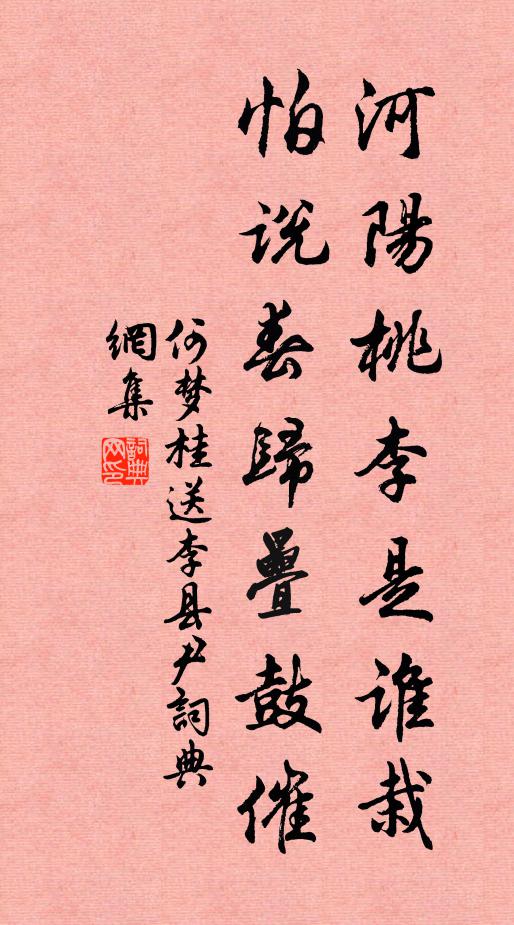 河陽桃李是誰栽
怕説春歸疊鼓催
何梦桂送李县尹詞典
網集
詞典
网印